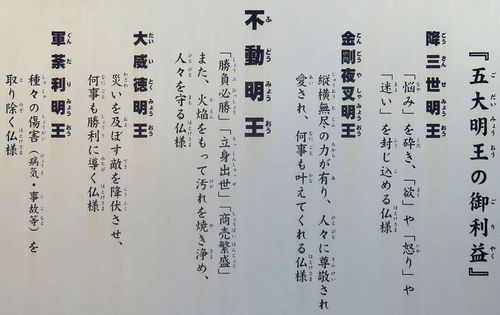 『五大明王の御利益』
降三世明王
「悩み」を砕き、「欲」や「怒り」や
「迷い」を封じ込める仏様
金剛夜叉明王
縦横無尽の力が有り、人々に尊敬され
愛され、何事も叶えてくれる仏様
不動明王
「勝負必勝」「立身出世」「商売繁盛」
また、火焔をもって汚れを焼き浄め、
人々を守る仏様
大威徳明王
災いを及ぼす敵を降伏させ、
何事も勝利に導く仏様
軍荼利明王
種々の傷害（病気・事故等）を
取り除く仏様